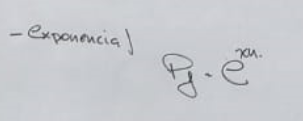 - Exponencial
Pj = e^xu.